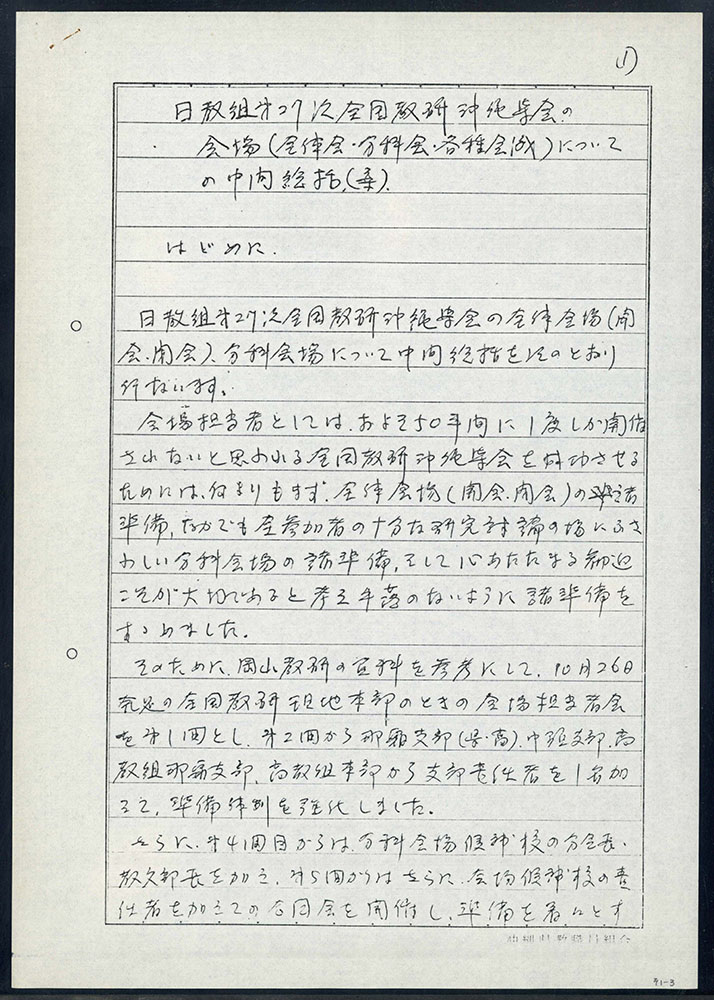 (1)
日教組第27次全国教研沖縄集会の
会場(全体会・分科会・各種会議)について
の中間総括(案).
はじめに.
日教組第27次全国教研沖縄集会の全体会場(開
会.閉会).分科会場について中間総括を次のとおり
行ないます。
会場担当者としては.およそ50年間に1度しか開催
されないと思われる全国教研沖縄集会を成功させる
ためには、何よりもまず.全体会場(開会.閉会)の諸
準備,なかでも全参加者の十分な研究討論の場にふさ
わしい分科会場の諸準備,そして心あたたまる歓迎
こそが大切であると考え手落のないように諸準備を
すゝめました.
そのために.岡山教研の資料を参考にして.10月26日
発足の全国教研現地本部のときの会場担当者会
を第1回とし.第2回から那覇支部(小・中).中頭支部.高
教組那覇支部.高教組本部から支部責任者を1名加
えて.準備体制を強化しました.
さらに.第4回目からは.分科会場候補校の分会長・
教文部長を加え.第5回からはさらに.会場候補校の責
任者を加えての合同会を開催し.準備を着々とす
沖縄県教職員組合
31-3